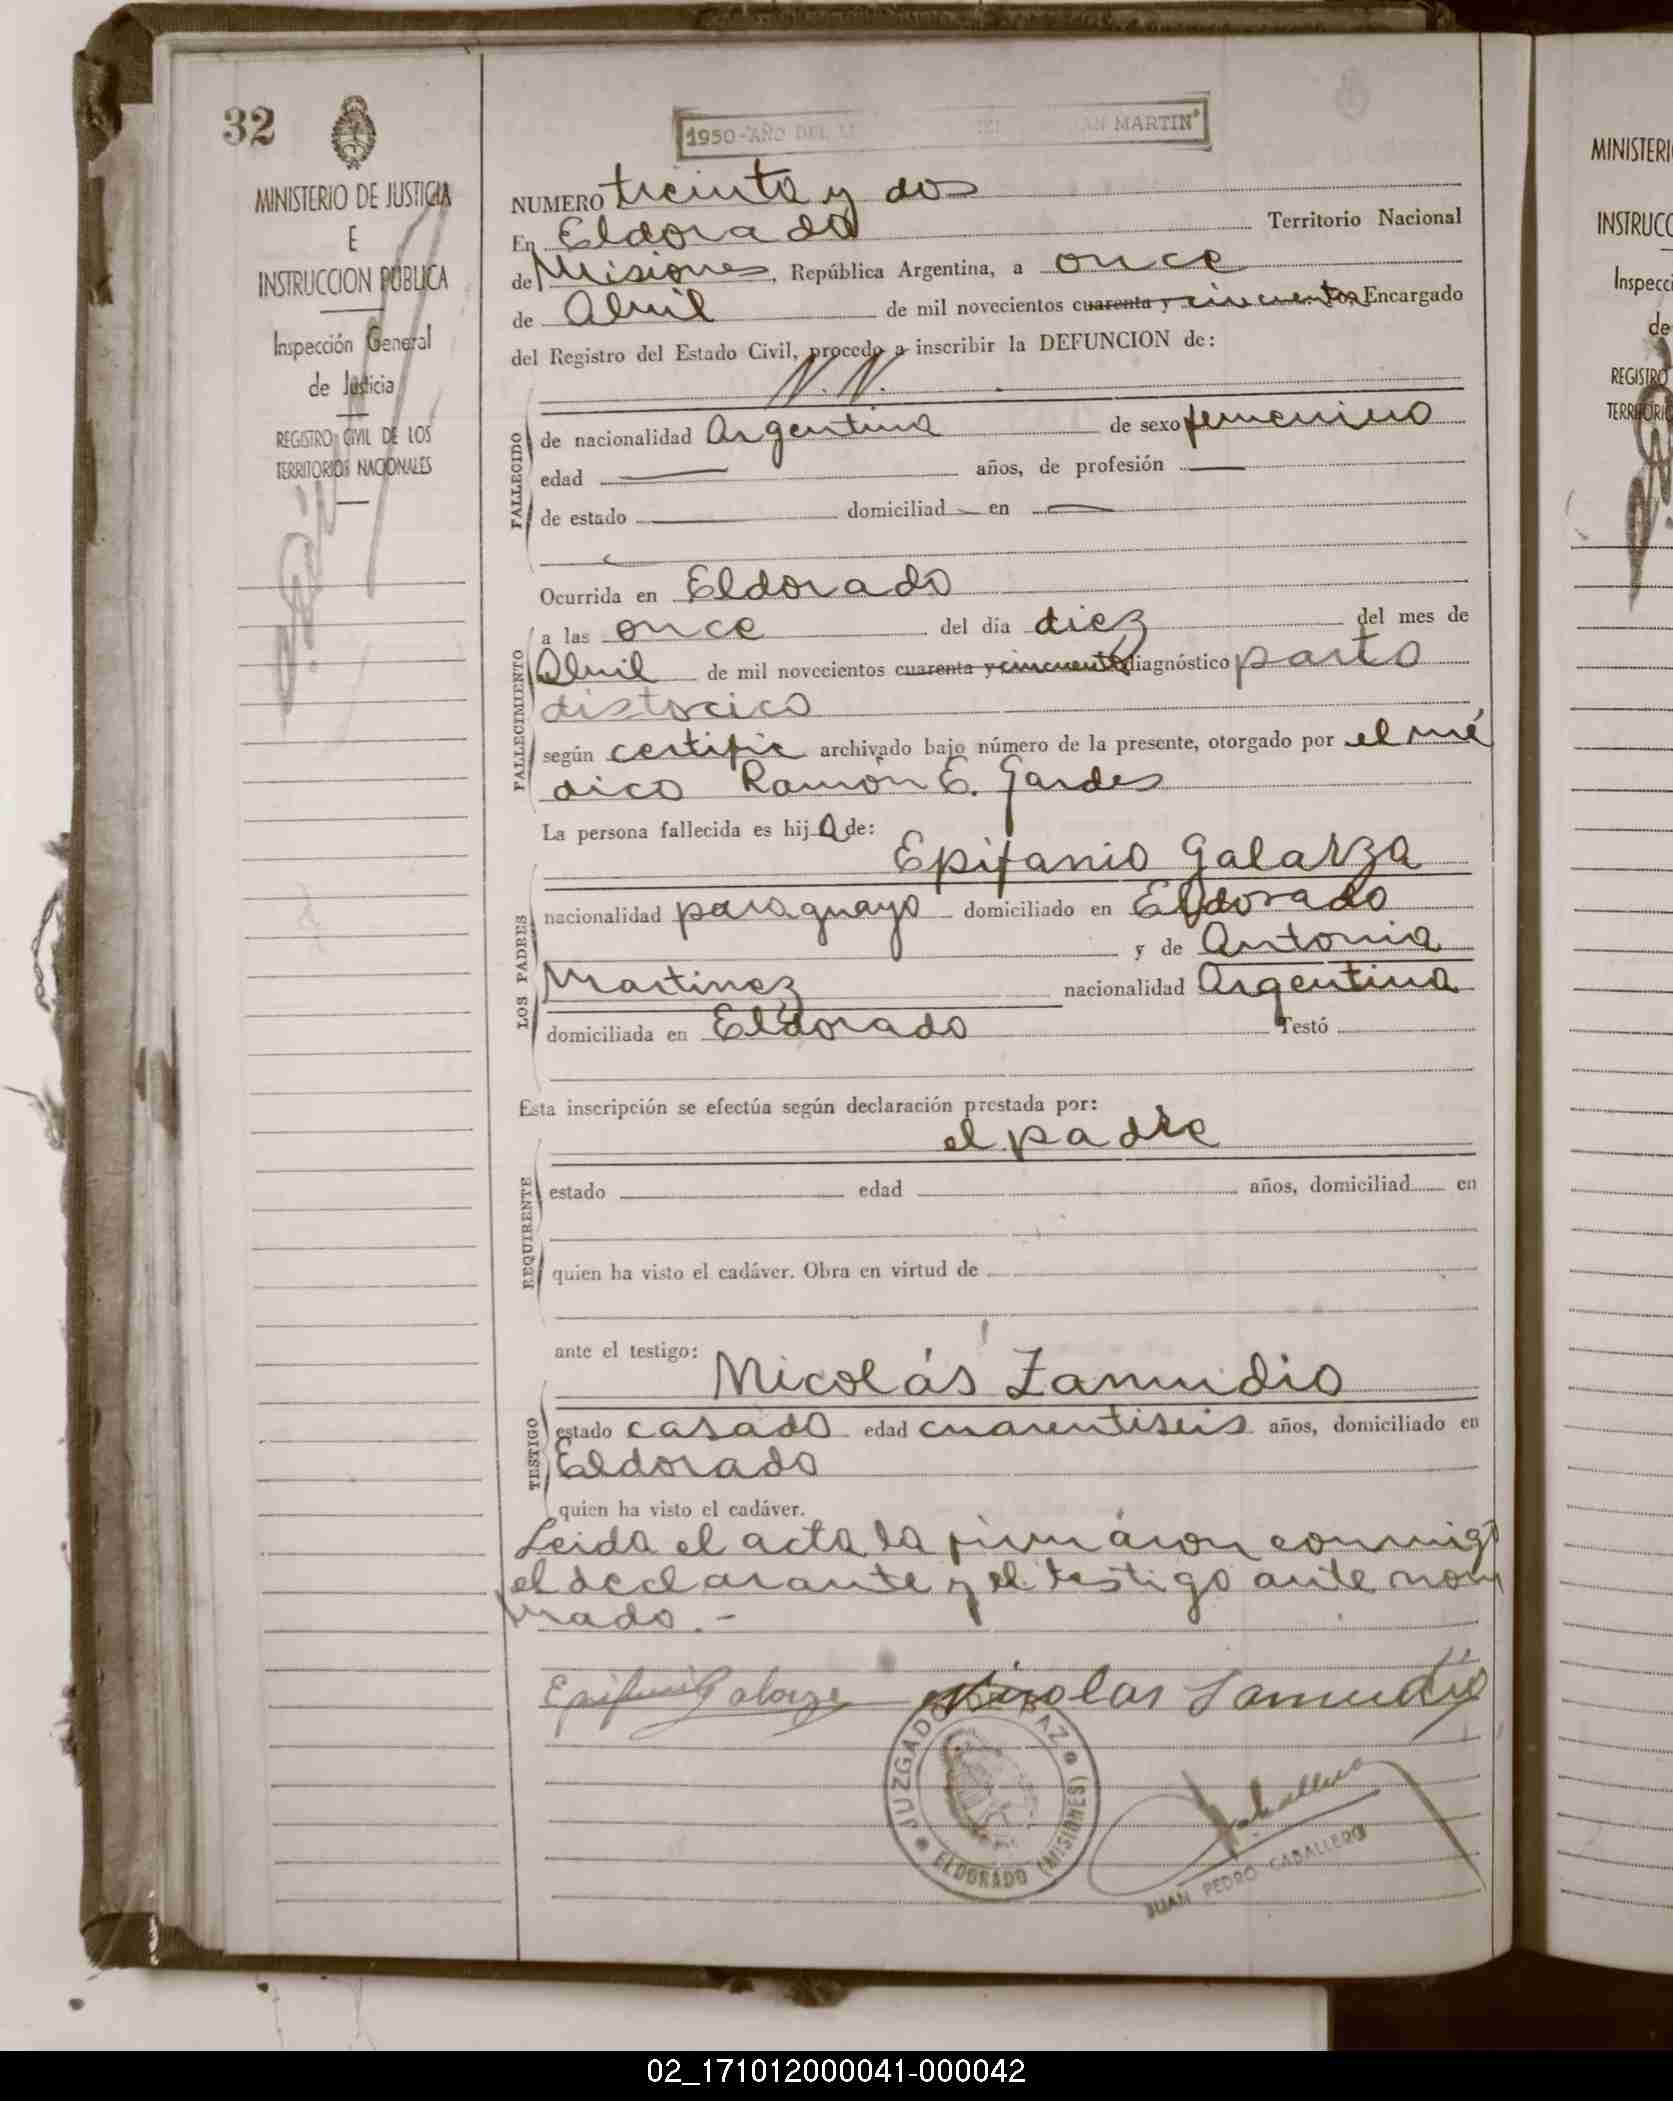 32
MINISTERIO DE JUSTICIA
E
INSTRUCCION PUBLICA
Inspección General
de Justicia
REGISTRO CIVIL DE LOS
TERRITORIOS NACIONALES
1950-"AÑO DEL SAN MARTIN"
NUMERO treinta y dos
En Eldorado Territorio Nacional
de Misiones, República Argentina, a once
de Abril de mil novecientos cuarenta y cincuenta Encargado
del Registro del Estado Civil, procedo a inscribir la DEFUNCION de:
N. N.
FALLECIDO
de nacionalidad Argentina de sexo femenino
edad años, de profesión
de estado domiciliad en
Ocurrida en Eldorado
FALLECIMIENTO
a las once del día diez del mes de
Abril de mil novecientos cuarenta y cincuenta diagnóstico parto
distocico
según certific archivado bajo número de la presente, otorgado por el mé
dico Ramón E. Gardes
La persona fallecida es hija de:
LOS PADRES
Epifanio Galarza
nacionalidad paraguayo domiciliado en Eldorado
y de Antonia
Martinez nacionalidad Argentina
domiciliada en Eldorado Testó
Esta inscripción se efectúa según declaración prestada por:
el padre
REQUIRENTE
estado edad años, domiciliad en
quien ha visto el cadáver. Obra en virtud de
ante el testigo:
Nicolás Zamudio
TESTIGO
estado casado edad cuarentiseis años, domiciliado en
Eldorado
quien ha visto el cadáver.
Leida el acta la firmáron conmigo
el declarante y el testigo ante nom
brado.-
Epifanio Galarza Nicolas Samudio
JUZGADO DE PAZ
ELDORADO (MISIONES)
JUAN PEDRO CABALLERO
MINISTERI
INSTRUCC
Inspecci
de
REGISTRO
TERRITORIO
02_171012000041-000042